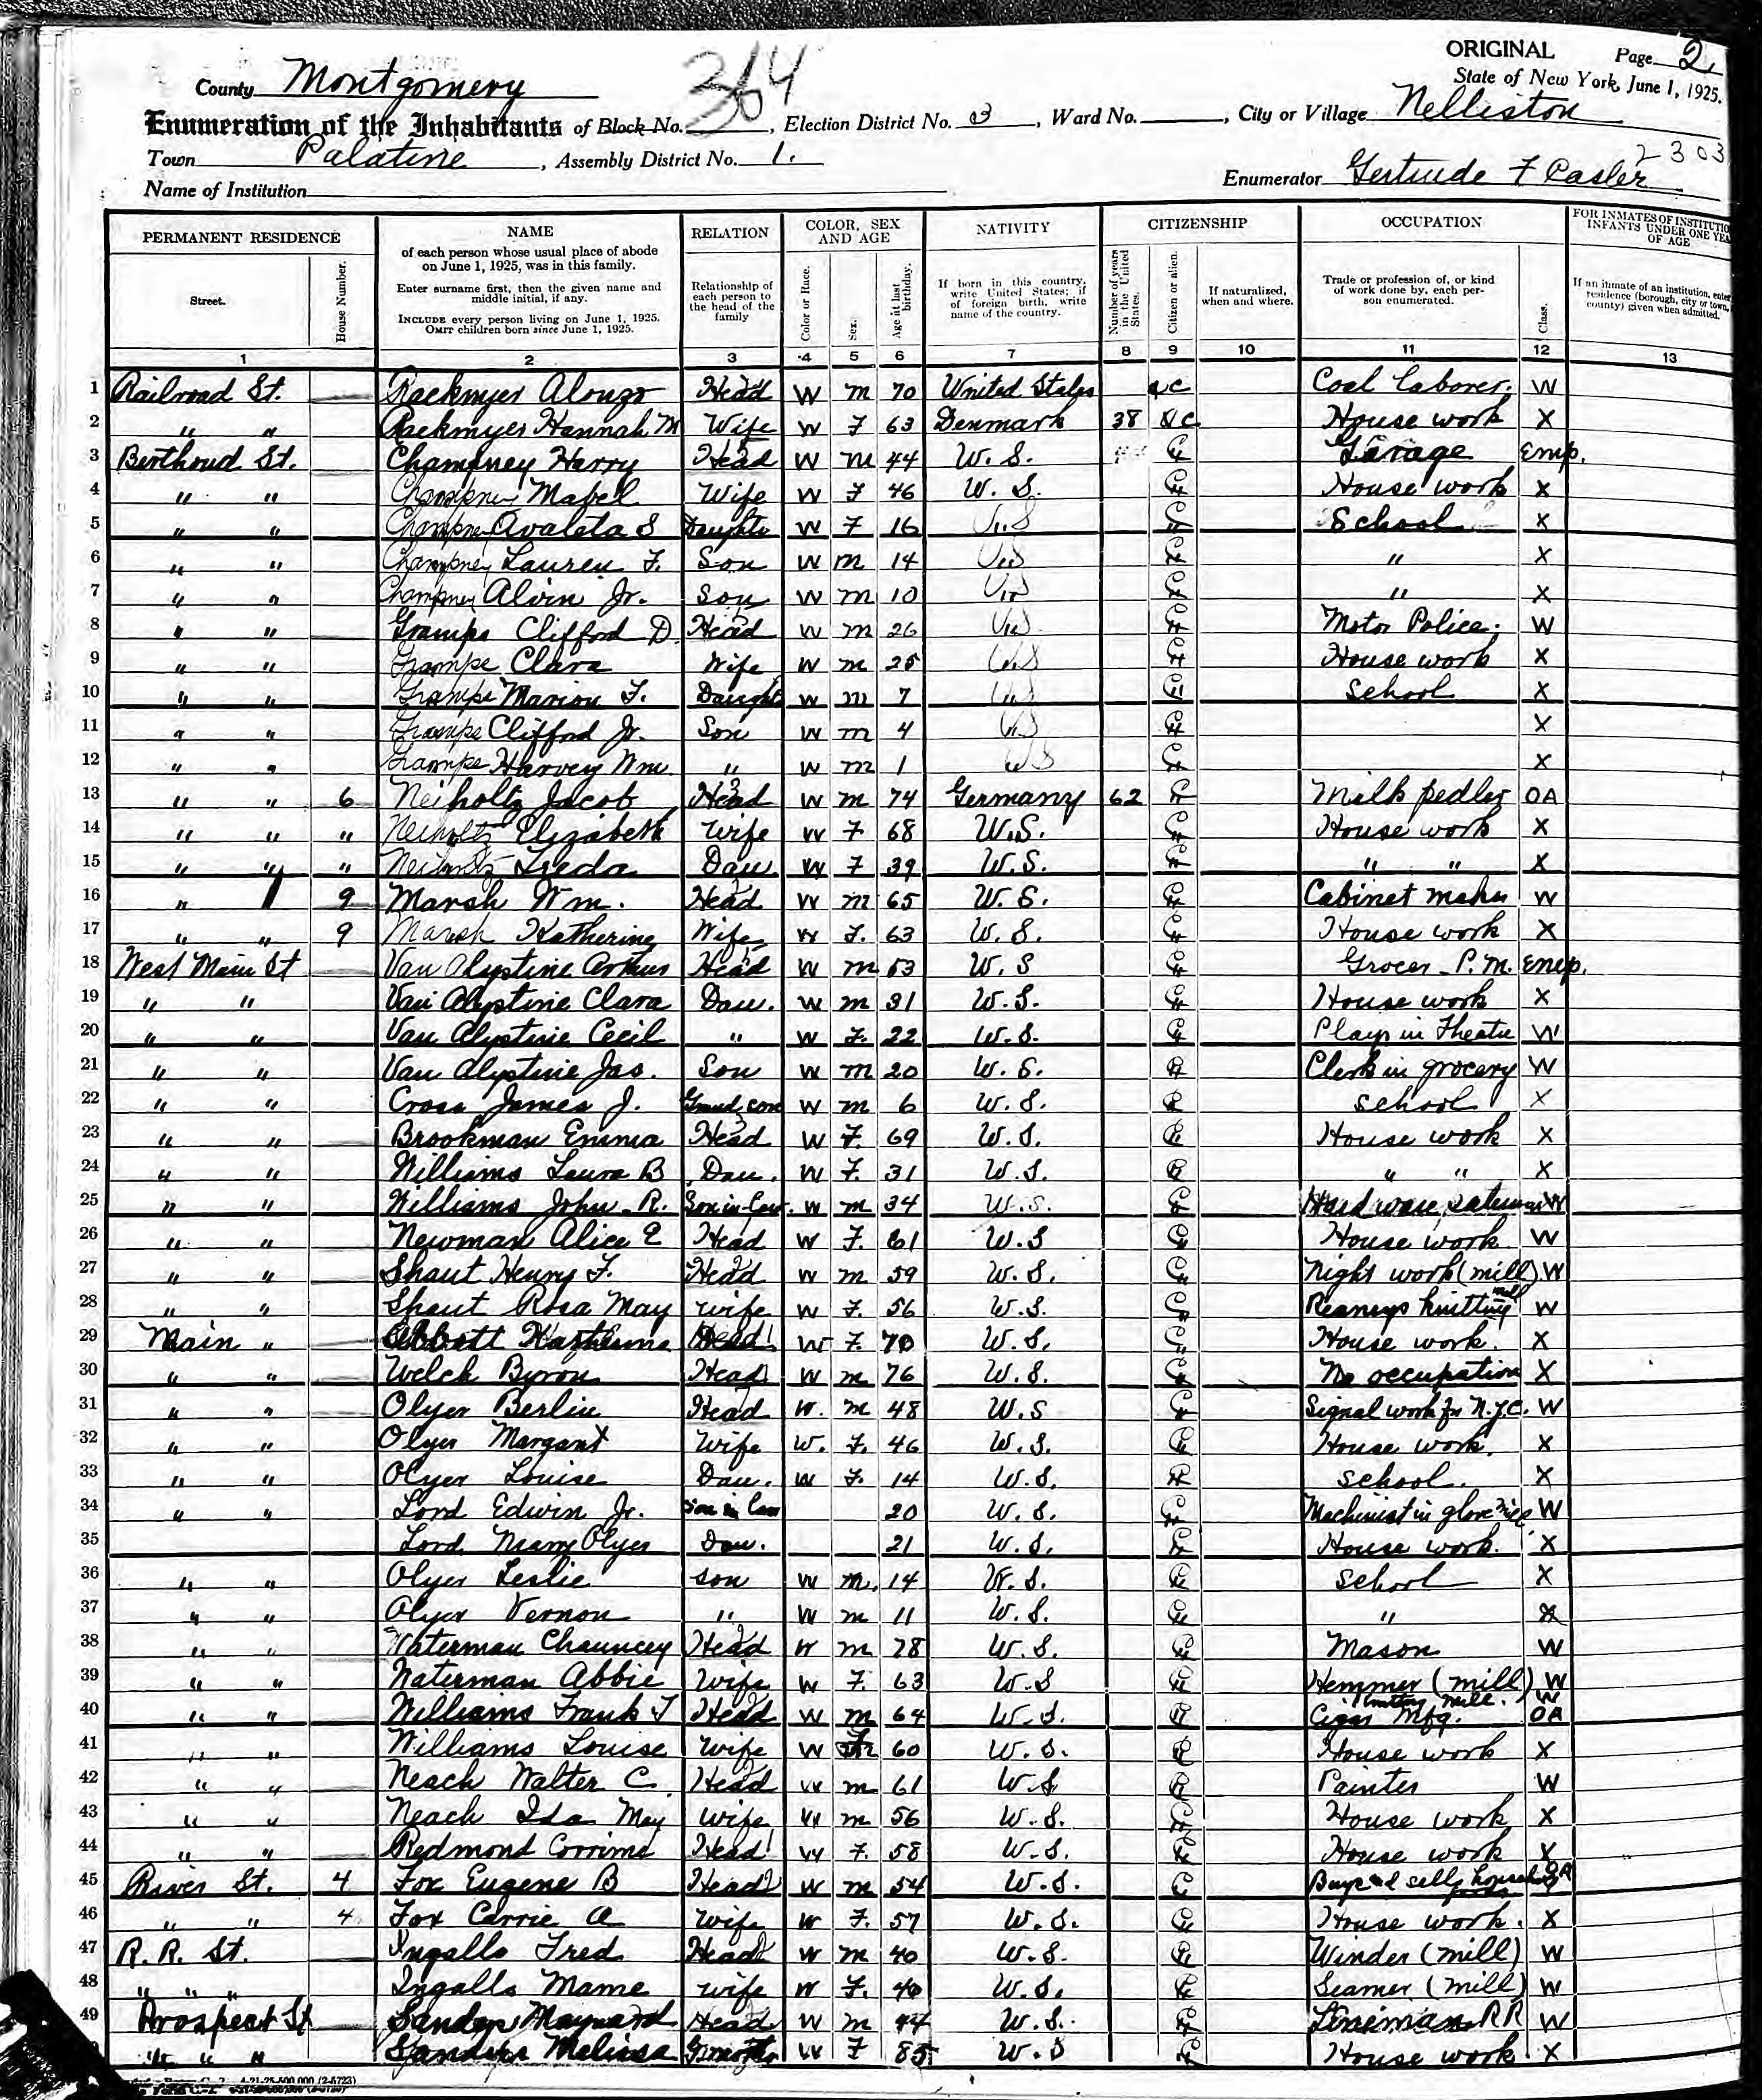 ORIGINAL Page 2
State of New York, June 1, 1925.
County Montgomery
364
Enumeration of the Inhabitants of Block No. , Election District No. 3 , Ward No. , City or Village Nelliston
Town Palatine , Assembly District No. 1.
2303
Name of Institution Enumerator Gertrude F Casler
PERMANENT RESIDENCE
Street.
House Number.
NAME
of each person whose usual place of abode on June 1, 1925, was in this family.
Enter surname first, then the given name and middle initial, if any.
INCLUDE every person living on June 1, 1925.
OMIT children born since June 1, 1925.
RELATION
Relationship of each person to the head of the family
COLOR, SEX AND AGE
Color or Race.
Sex.
Age at last birthday.
NATIVITY
If born in this country, write United States; if of foreign birth, write name of the country.
CITIZENSHIP
Number of years in the United States.
Citizen or alien.
If naturalized, when and where.
OCCUPATION
Trade or profession of, or kind of work done by, each person enumerated.
Class.
FOR INMATES OF INSTITUTIO
INFANTS UNDER ONE YEA
OF AGE
If an inmate of an institution, enter residence (borough, city or town, county) given when admitted.
1 2 3 4 5 6 7 8 9 10 11 12 13
1 Railroad St. Rackmyer Alonzo Head W m 70 United States C Coal laborer. W
2 " " Rackmyer Hannah M Wife W F 63 Denmark 38 C House work X
3 Berthoud St. Champney Harry Head W m 44 U. S. C Garage Emp.
4 " " Champney Mabel Wife W F 46 U. S. C House work X
5 " " Champney Avaleta S Daughter W F 16 U.S C School X
6 " " Champney Lauren F. Son W m 14 U.S C " X
7 " " Champney Alvin Jr. Son W m 10 U.S C " X
8 " " Grampe Clifford D. Head W m 26 U.S C Motor Police. W
9 " " Grampe Clara Wife W m 25 U.S C House work X
10 " " Grampe Marion F. Daught W m 7 U.S C School X
11 " " Grampe Clifford Jr. Son W m 4 U.S C X
12 " " Grampe Harvey Wm " W m 1 U.S C X
13 " " 6 Neiholtz Jacob Head W m 74 Germany 62 C Milk pedler OA
14 " " " Neiholtz Elizabeth Wife W F 68 U.S. C House work X
15 " " " Neiholtz Leeda Dau W F 39 U.S. C " " X
16 " 9 Marsh Wm. Head W m 65 U. S. C Cabinet maker W
17 " " 9 Marsh Katherine Wife W F. 63 U. S. C House work X
18 West Main St Van Alystine Arthur Head W m 53 U. S C Grocer - P. M. Emp.
19 " " Van Alystine Clara Dau. W m 31 U.S. C House work X
20 " " Van Alystine Cecil " W F. 22 U.S. C Plays in Theatre W
21 " " Van Alystine Jas. Son W m 20 U.S. C Clerk in grocery W
22 " " Cross James J. Grand son W m 6 U.S. C school X
23 " " Brookman Emma Head W F. 69 U.S. C House work X
24 " " Williams Laura B Dau. W F. 31 U.S. C " " X
25 " " Williams John R. Son-in-law. W m 34 U.S. C Hardware salesman W
26 " " Newman Alice E Head W F. 61 U.S C House work W
27 " " Shaut Henry F. Head W m 59 U.S. C Night work (mill) W
28 " " Shaut Rosa May wife W F. 56 U.S. C Reaneys knitting mill W
29 Main " Abbott Katherine Head W F. 70 U.S. C House work. X
30 " " Welch Byron Head W m 76 U.S. C No occupation X
31 " " Olyer Berlin Head W. m 48 U.S C Signal work for N.Y.C. W
32 " " Olyer Margaret Wife W. F. 46 U.S. C House work. X
33 " " Olyer Louise Dau. W F. 14 U.S. C school. X
34 " " Lord Edwin Jr. son in law 20 U.S. C Machinist in glove mill W
35 Lord Mary Olyer Dau. 21 U.S. C House work. X
36 " " Olyer Leslie son W m. 14 U.S. C school X
37 " " Olyer Vernon " W m 11 U.S. C " X
38 " " Waterman Chauncey Head W m 78 U.S. C Mason W
39 " " Waterman Abbie wife W F. 63 U.S C Hemmer (mill) W
knitting mill. W
40 " " Williams Frank T Head W m 64 U.S. C Cigar Mfg. OA
41 " " Williams Louise wife W F 60 U.S. C House work X
42 " " Neach Walter C. Head W m 61 U.S. C Painter W
43 " " Neach Ida May wife W m 56 U.S. C House work X
44 " " Redmond Corrine Head W F. 58 U.S. C House work X
45 River St. 4 Fox Eugene B Head W m 54 U.S. C Buys and sells household goods OA
46 " " 4 Fox Carrie A wife W F. 57 U.S. C House work. X
47 R. R. St. Ingalls Fred Head W m 40 U.S. C Winder (mill) W
48 " " " Ingalls Mame wife W F. 40 U.S. C Seamer (mill) W
49 Prospect St Sanders Maynard Head W m 44 U.S. C Lineman RR W
" " " Sanders Melissa Gr mother W F 85 U.S C House work X
4-21-25-500,000 (2-5723)